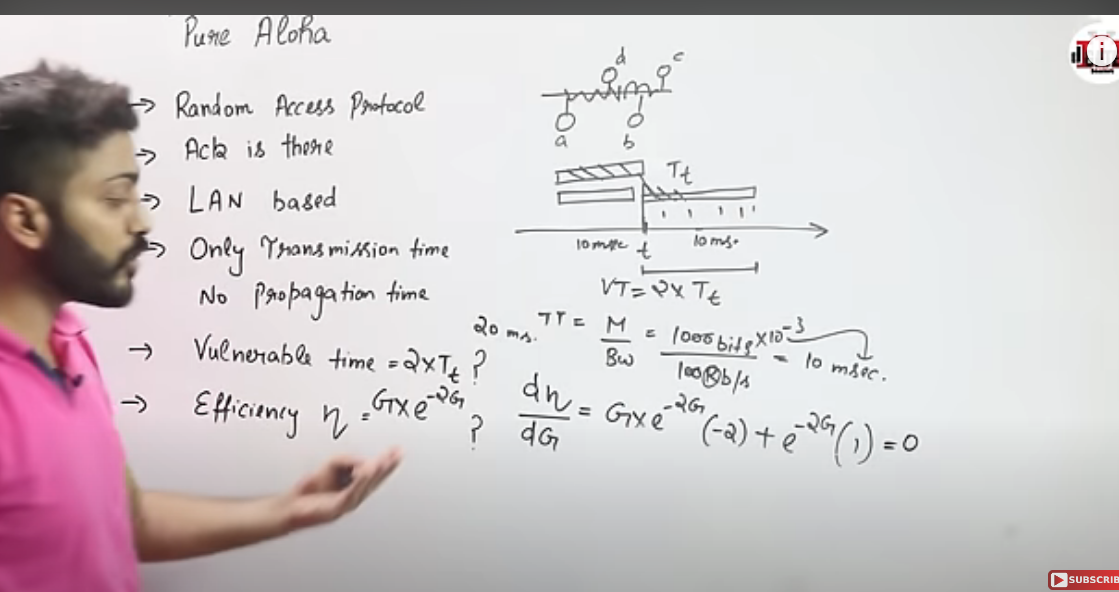 Pure Aloha
→ Random Access Protocol
→ Ack is there
→ LAN based
→ Only Transmission time
No Propagation time
→ Vulnerable time = 2×Tt ?
→ Efficiency η = G×e^-2G ?
d c
a b
Tt
10 msec t 10 ms.
VT = 2× Tt
20 ms. TT = M/BW = 1000 bits ×10^-3 / 100 K b/s = 10 msec.
dη/dG = G×e^-2G (-2) + e^-2G (1) = 0
i
SUBSCRIB